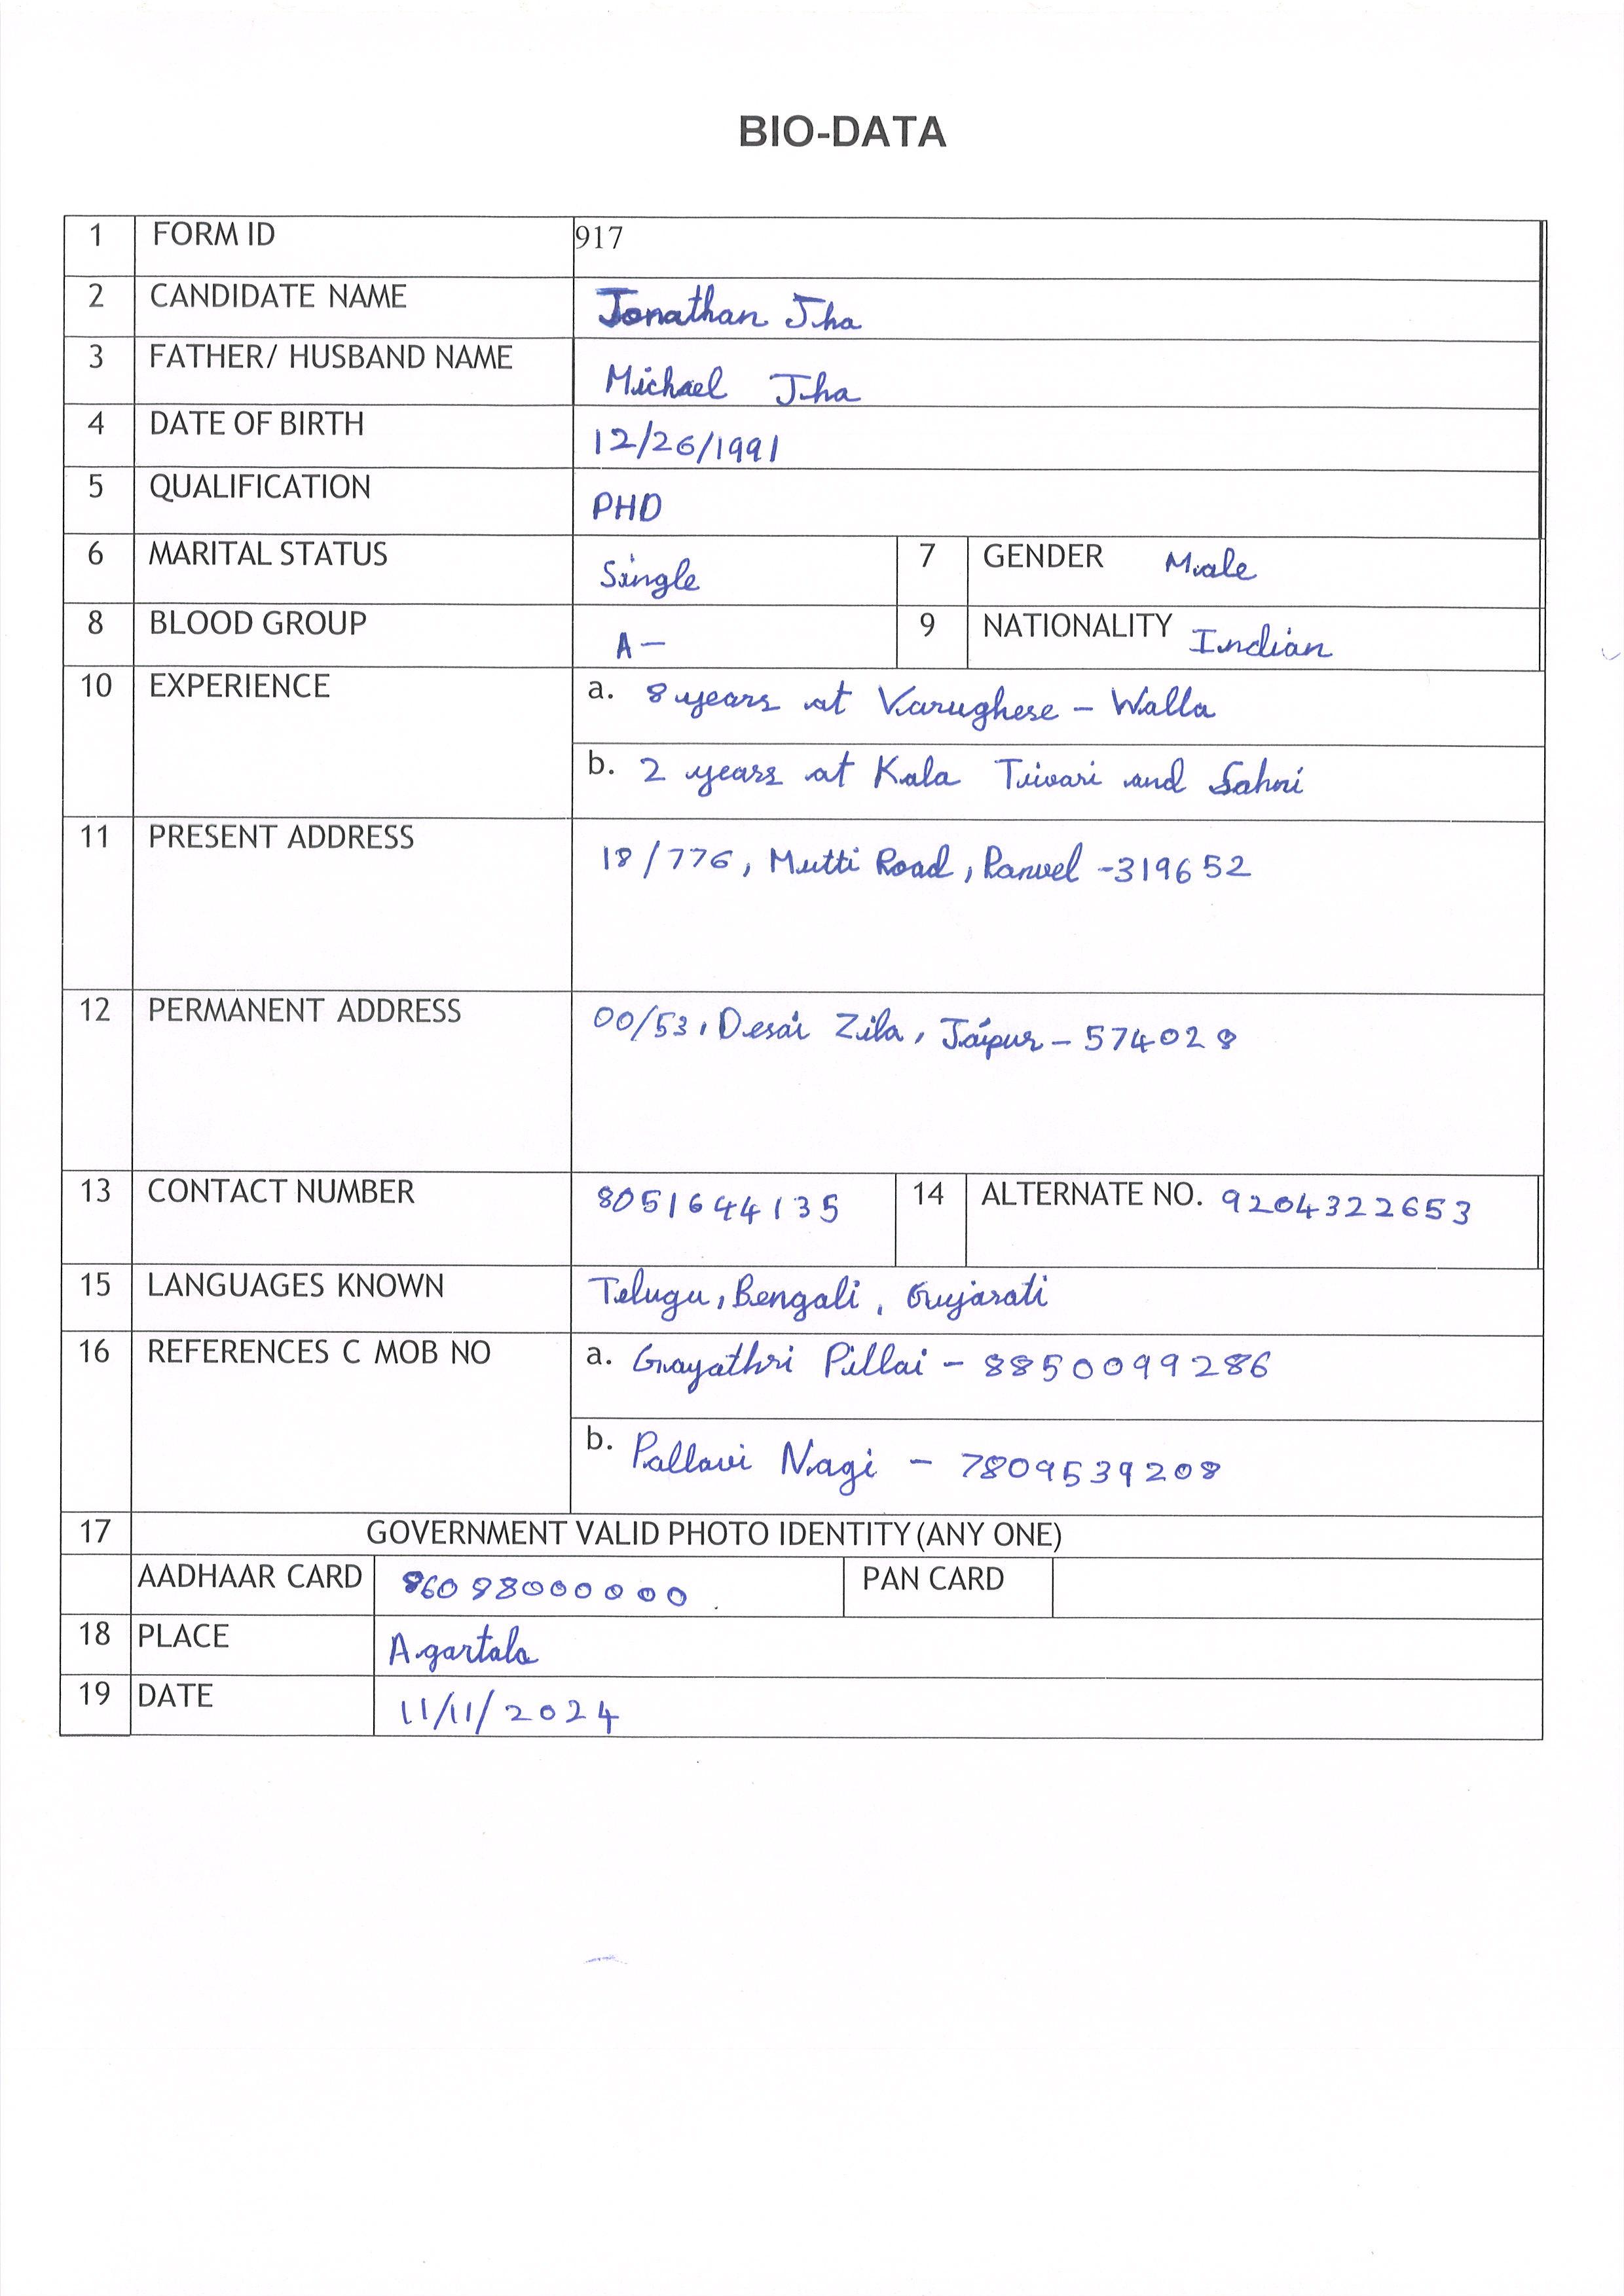 BIO-DATA
1 FORM ID 917
2 CANDIDATE NAME Jonathan Jha
3 FATHER/ HUSBAND NAME Michael Jha
4 DATE OF BIRTH 12/26/1991
5 QUALIFICATION PHD
6 MARITAL STATUS Single 7 GENDER Male
8 BLOOD GROUP A- 9 NATIONALITY Indian
10 EXPERIENCE a. 8 years at Varughese - Walla
b. 2 years at Kala Tiwari and Sahni
11 PRESENT ADDRESS 18/776, Mutti Road, Panvel -319652
12 PERMANENT ADDRESS 00/53, Desai Zila, Jaipur - 574028
13 CONTACT NUMBER 8051644135 14 ALTERNATE NO. 9204322653
15 LANGUAGES KNOWN Telugu, Bengali, Gujarati
16 REFERENCES C MOB NO a. Gnayathri Pillai - 8850099286
b. Pallavi Nagi - 7809539208
17 GOVERNMENT VALID PHOTO IDENTITY (ANY ONE)
AADHAAR CARD 86088000000 PAN CARD
18 PLACE Agartala
19 DATE 11/11/2024